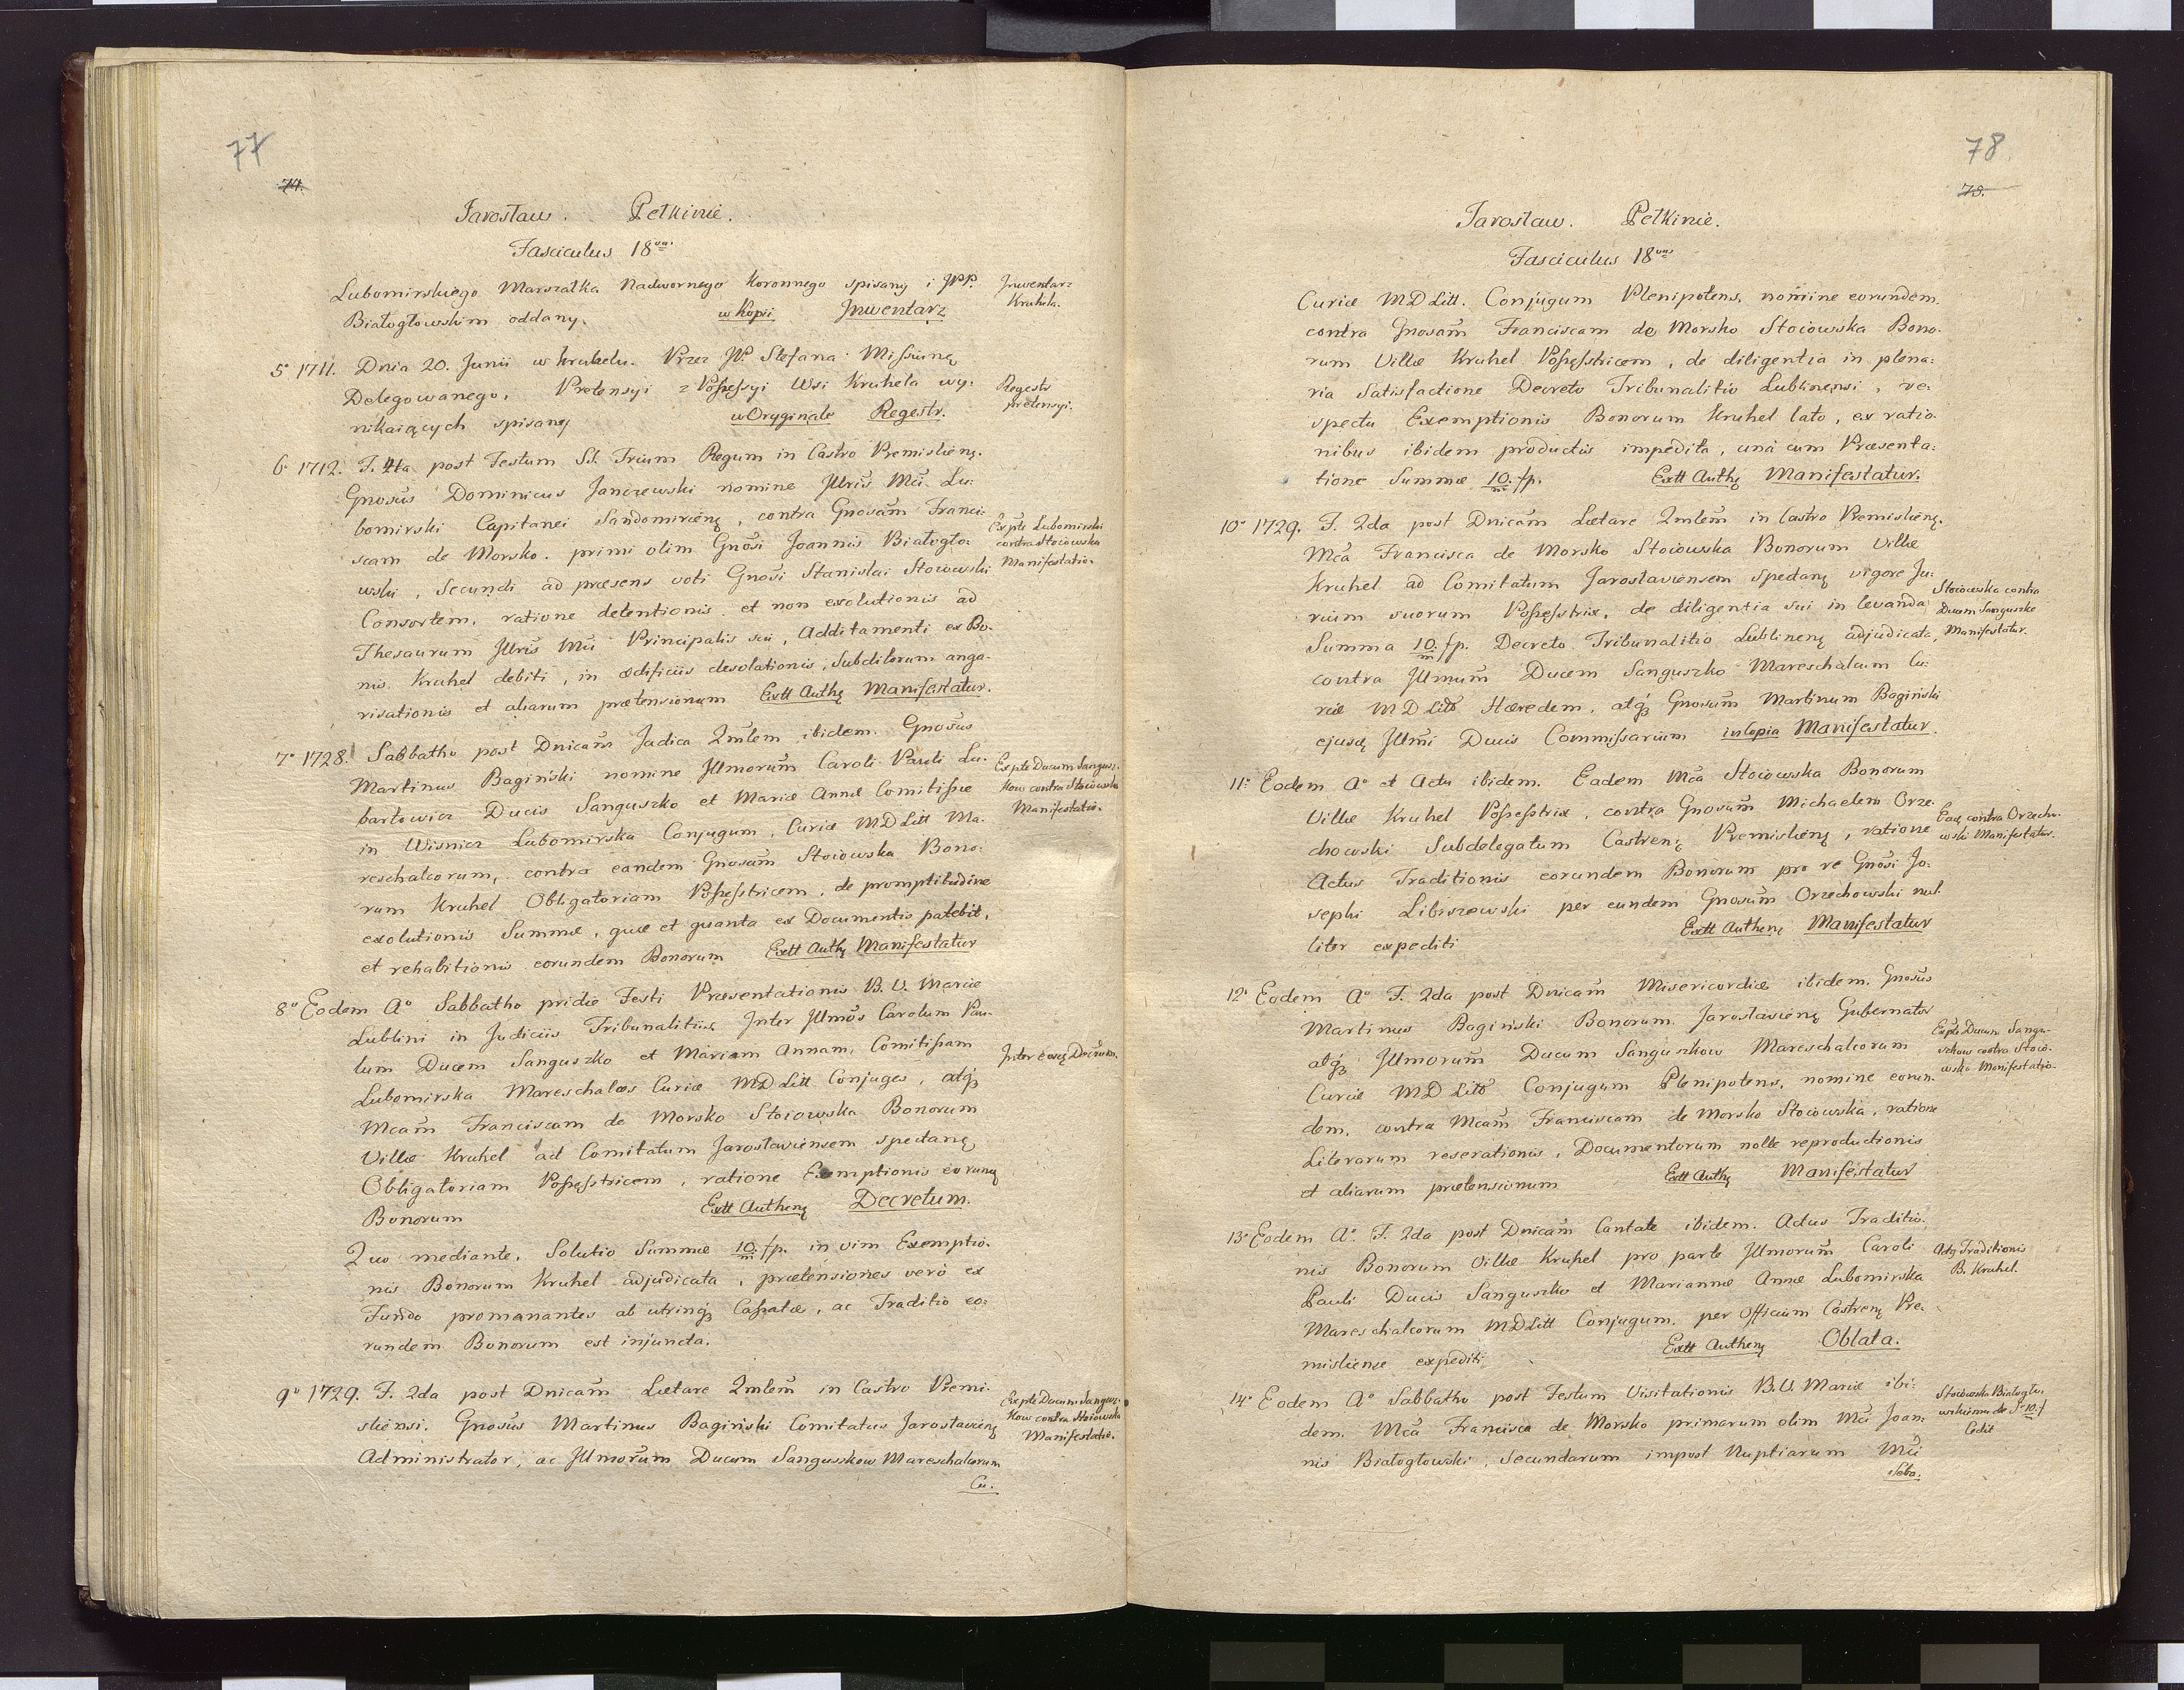 77
74.
Jarosław. Pełkinie.
Fasciculus 18vus
Lubomirskiego Marszałka Nadwornego Koronnego spisany i JPP.
Białogłowskim oddany. w Kopii Jnwentarz
Jnwentarz
Kruhela.
5o 1711. Dnia 20. Junii w Kruhelu. Przez JP. Stefana Missiunę
Delegowanego, Pretensyi z Possessyi Wsi Kruhela wy-
nikaiących spisany w Oryginale Regestr.
Regestr
pretensyi.
6o 1712. F. 4ta post Festum SS. Trium Regum in Castro Premislieng.
Gnosus Dominicus Janczewski nomine Jllris Mci Lu-
bomirski Capitanei Sandomirieng, contra Gnosam Franci-
scam de Morsko. primi olim Gnosi Joannis Białogło-
wski, Secundi ad præsens voti Gnosi Stanislai Stoiowski
Consortem, ratione detentionis et non exolutionis ad
Thesaurum Jllris Mci Principalis sui, Additamenti ex Bo-
nis Kruhel debiti, in ædificiis desolationis, Subditorum anga-
risationis et aliarum prætensionum Extt Authg Manifestatur.
Ex pte Lubomirski
contra Stoiowska
Manifestatio.
7o 1728. Sabbatho post Dnicam Judica Qmlem ibidem. Gnosus
Martinus Bagiński nomine Jllmorum Caroli Pauli Lu-
bartowicz Ducis Sanguszko et Mariæ Annæ Comitissæ
in Wisnicz Lubomirska Conjugum, Curiæ MDLitt Ma-
reschalcorum, contra eandem Gnosam Stoiowska Bono-
rum Kruhel Obligatoriam Possesstricem, de promptitudine
exolutionis Summæ, quæ et quanta ex Documentis patebit,
et rehabitionis eorundem Bonorum Extt Authg Manifestatur
Ex pte Ducum Sangusz-
kow contra Stoiowska
Manifestatio.
8o Eodem Ao Sabbatho pridie Festi Præsentationis B. V. Mariæ
Lublini in Judiciis Tribunalitiis Jnter Jllmos Carolum Pau-
lum Ducem Sanguszko et Mariam Annam, Comitissam
Lubomirska Mareschalcos Curiæ MDLitt Conjuges, atq3
Mcam Franciscam de Morsko Stoiowska Bonorum
Villæ Kruhel ad Comitatum Jaroslaviensem spectang
Obligatoriam Possesstricem, ratione Exemptionis eorung
Bonorum Extt Autheng Decretum.
Jnter eosg Decretum.
Quo mediante, Solutio Summæ 10/m fp. in vim Exemptio-
nis Bonorum Kruhel adjudicata, prætensiones verò ex
Fundo promanantes ab utrinq3 Cassatæ, ac Traditio eo-
rundem Bonorum est injuncta.
9o 1729. F. 2da post Dnicam Lætare Qmlem in Castro Premi-
sliensi. Gnosus Martinus Bagiński Comitatus Jaroslavieng
Administrator, ac Jllmorum Ducum Sanguszkow Mareschalcorum
Cu.
Ex pte Ducum Sangusz-
kow contra Stoiowska
Manifestatio.
78
75.
Jarosław. Pełkinie.
Fasciculus 18vus
Curiæ MDLitt. Conjugum Plenipotens, nomine eorundem
contra Gnosam Franciscam de Morsko Stoiowska Bono-
rum Villæ Kruhel Possesstricem, de diligentia in plena-
ria Satisfactione Decreto Tribunalitio Lublinensi, re-
spectu Exemptionis Bonorum Kruhel lato, ex ratio-
nibus ibidem productis impedita, unà cum Præsenta-
tione Summæ 10/m fp. Extt Authg Manifestatur.
10o 1729. F. 2da post Dnicam Lætare Qmlem in Castro Premislieng.
Mca Francisca de Morsko Stoiowska Bonorum Villæ
Kruhel ad Comitatum Jaroslaviensem spectang vigore Ju-
rium suorum Possesstrix, de diligentia sui in levanda
Summa 10/m fp. Decreto Tribunalitio Lublineng adjudicata,
contra Jllmum Ducem Sanguszko Mareschalcum Cu-
riæ MD Litt Hæredem, atq3 Gnosum Martinum Bagiński
ejusg Jllmi Ducis Commissarium in Copia Manifestatur.
Stoiowska contra
Ducem Sanguszko
Manifestatur.
11o Eodem Ao et Actu ibidem. Eadem Mca Stoiowska Bonorum
Villæ Kruhel Possesstrix, contra Gnosum Michaelem Orze-
chowski Subdelegatum Castreng Premislieng, ratione
Actus Traditionis eorundem Bonorum pro re Gnosi Jo-
sephi Libiszewski per eundem Gnosum Orzechowski nul-
liter expediti Extt Autheng Manifestatur
Eadg contra Orzecho-
wski Manifestatur.
12o Eodem Ao F. 2da post Dnicam Misericordiæ ibidem. Gnosus
Martinus Bagiński Bonorum Jaroslavieng Gubernator
atq3 Jllmorum Ducum Sanguszkow Mareschalcorum
Curiæ MD Litt Conjugum Plenipotens, nomine eorun-
dem, contra Mcam Franciscam de Morsko Stoiowska, ratione
Literarum reserationis, Documentorum nolle reproductionis
et aliarum prætensionum Extt Authg Manifestatur
Ex pte Ducum Sangu-
szkow contra Stoio-
wska Manifestatio.
13o Eodem Ao F. 2da post Dnicam Cantate ibidem. Actus Traditio-
nis Bonorum Villæ Kruhel pro parte Jllmorum Caroli
Pauli Ducis Sanguszko et Mariannæ Annæ Lubomirska
Mareschalcorum MDLitt Conjugum, per Officium Castreng Pre-
misliense expediti Extt Autheng Oblata.
Actg Traditionis
B. Kruhel.
14o Eodem Ao Sabbatho post Festum Visitationis B.V. Mariæ ibi-
dem. Mca Francisca de Morsko primarum olim Mci Joan-
nis Białogłowski, Secundarum impost Nuptiarum Mci
Seba.
Stoiowska Białogło-
wskiemu de S 10/m f
Cedit